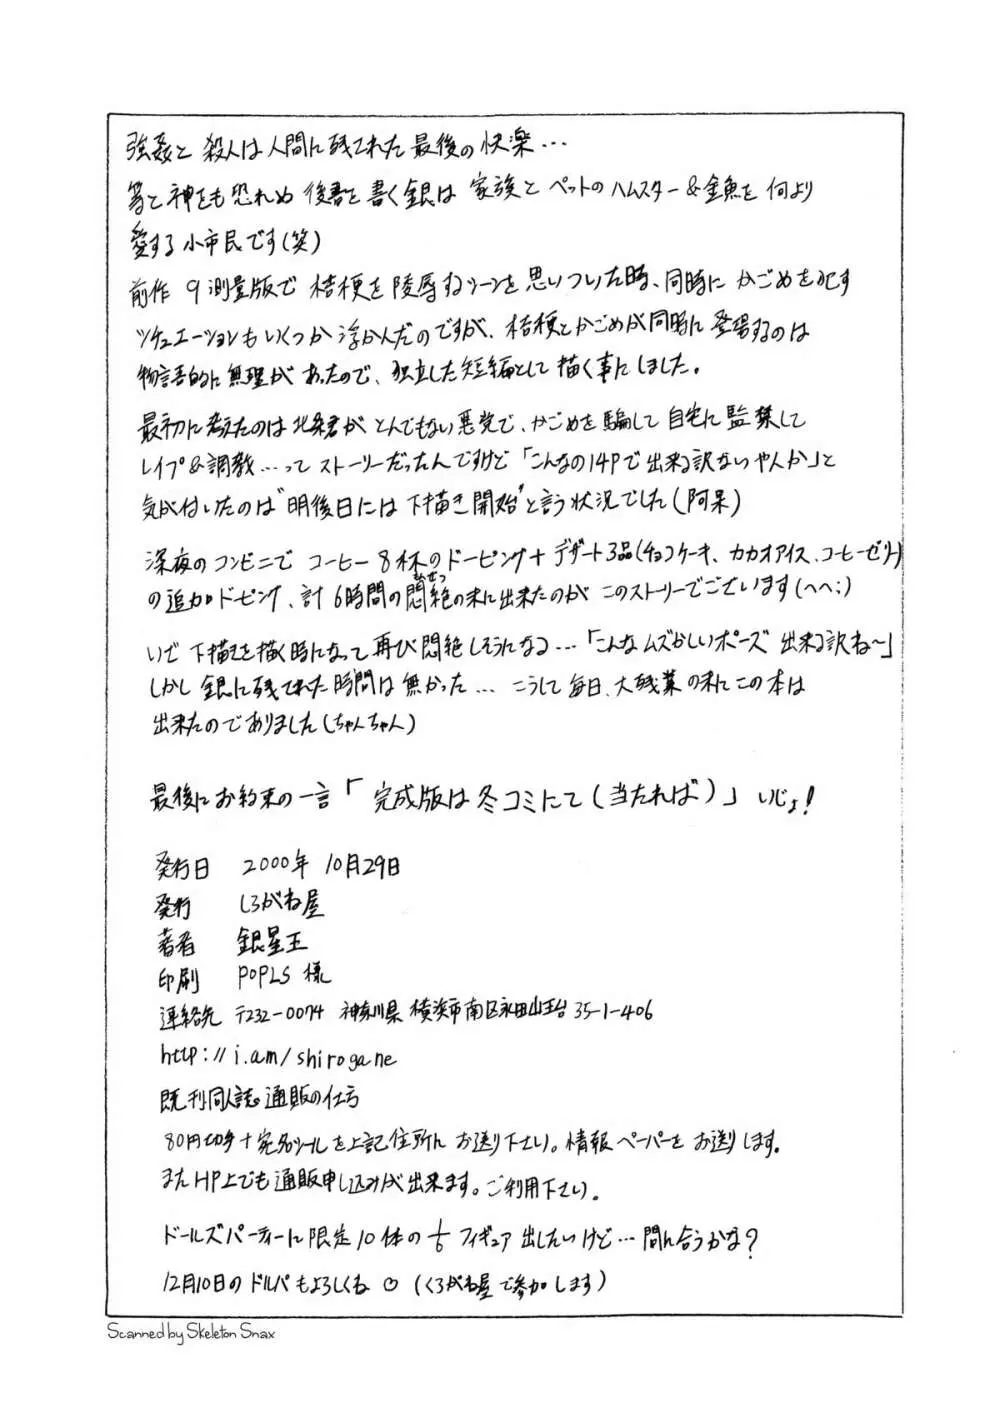 強姦と殺人は人間に残された最後の快楽…
等と神をも恐れぬ後書を書く銀は家族とペットのハムスター＆金魚を何より
愛する小市民です(笑)
前作 9測量版で桔梗を陵辱するシーンを思いついた時、同時にかごめを犯す
シチュエーションもいくつか浮かんだのですが、桔梗とかごめが同時に登場するのは
物語的に無理があったので、独立した短編として描く事にしました。
最初に考えたのは北条君がとんでもない悪党で、かごめを騙して自宅に監禁して
レイプ＆調教…ってストーリーだったんですけど「こんなの14Pで出来る訳ないやんか」と
気が付いたのは"明後日には下描き開始"と言う状況でした(阿呆)
深夜のコンビニでコーヒー8杯のドーピング＋デザート3品(チョコケーキ、カカオアイス、コーヒーゼリー)
の追加ドーピング、計6時間の悶絶の末に出来たのがこのストーリーでございます(へへ；)
いざ下描きを描く時になって再び悶絶しそうになる…「こんなムズかしいポーズ出来る訳ね〜」
しかし銀に残された時間は無かった…こうして毎日、大残業の末にこの本は
出来たのでありました(ちゃんちゃん)
最後にお約束の一言「完成版は冬コミにて(当たれば)」いじょ！
発行日 2000年10月29日
発行 しろがね屋
著者 銀星王
印刷 POPLS 様
連絡先 〒232-0074 神奈川県横浜市南区永田山王台35-1-406
http://i.am/shirogane
既刊同人誌通販の仕方
80円切手＋宛名シールを上記住所にお送り下さい。情報ペーパーをお送りします。
またHP上でも通販申し込みが出来ます。ご利用下さい。
ドールズパーティーに限定10体の1/6フィギュア出したいけど…間に合うかな？
12月10日のドルパもよろしくね♡(くろがね屋で参加します)
Scanned by Skeleton Snax